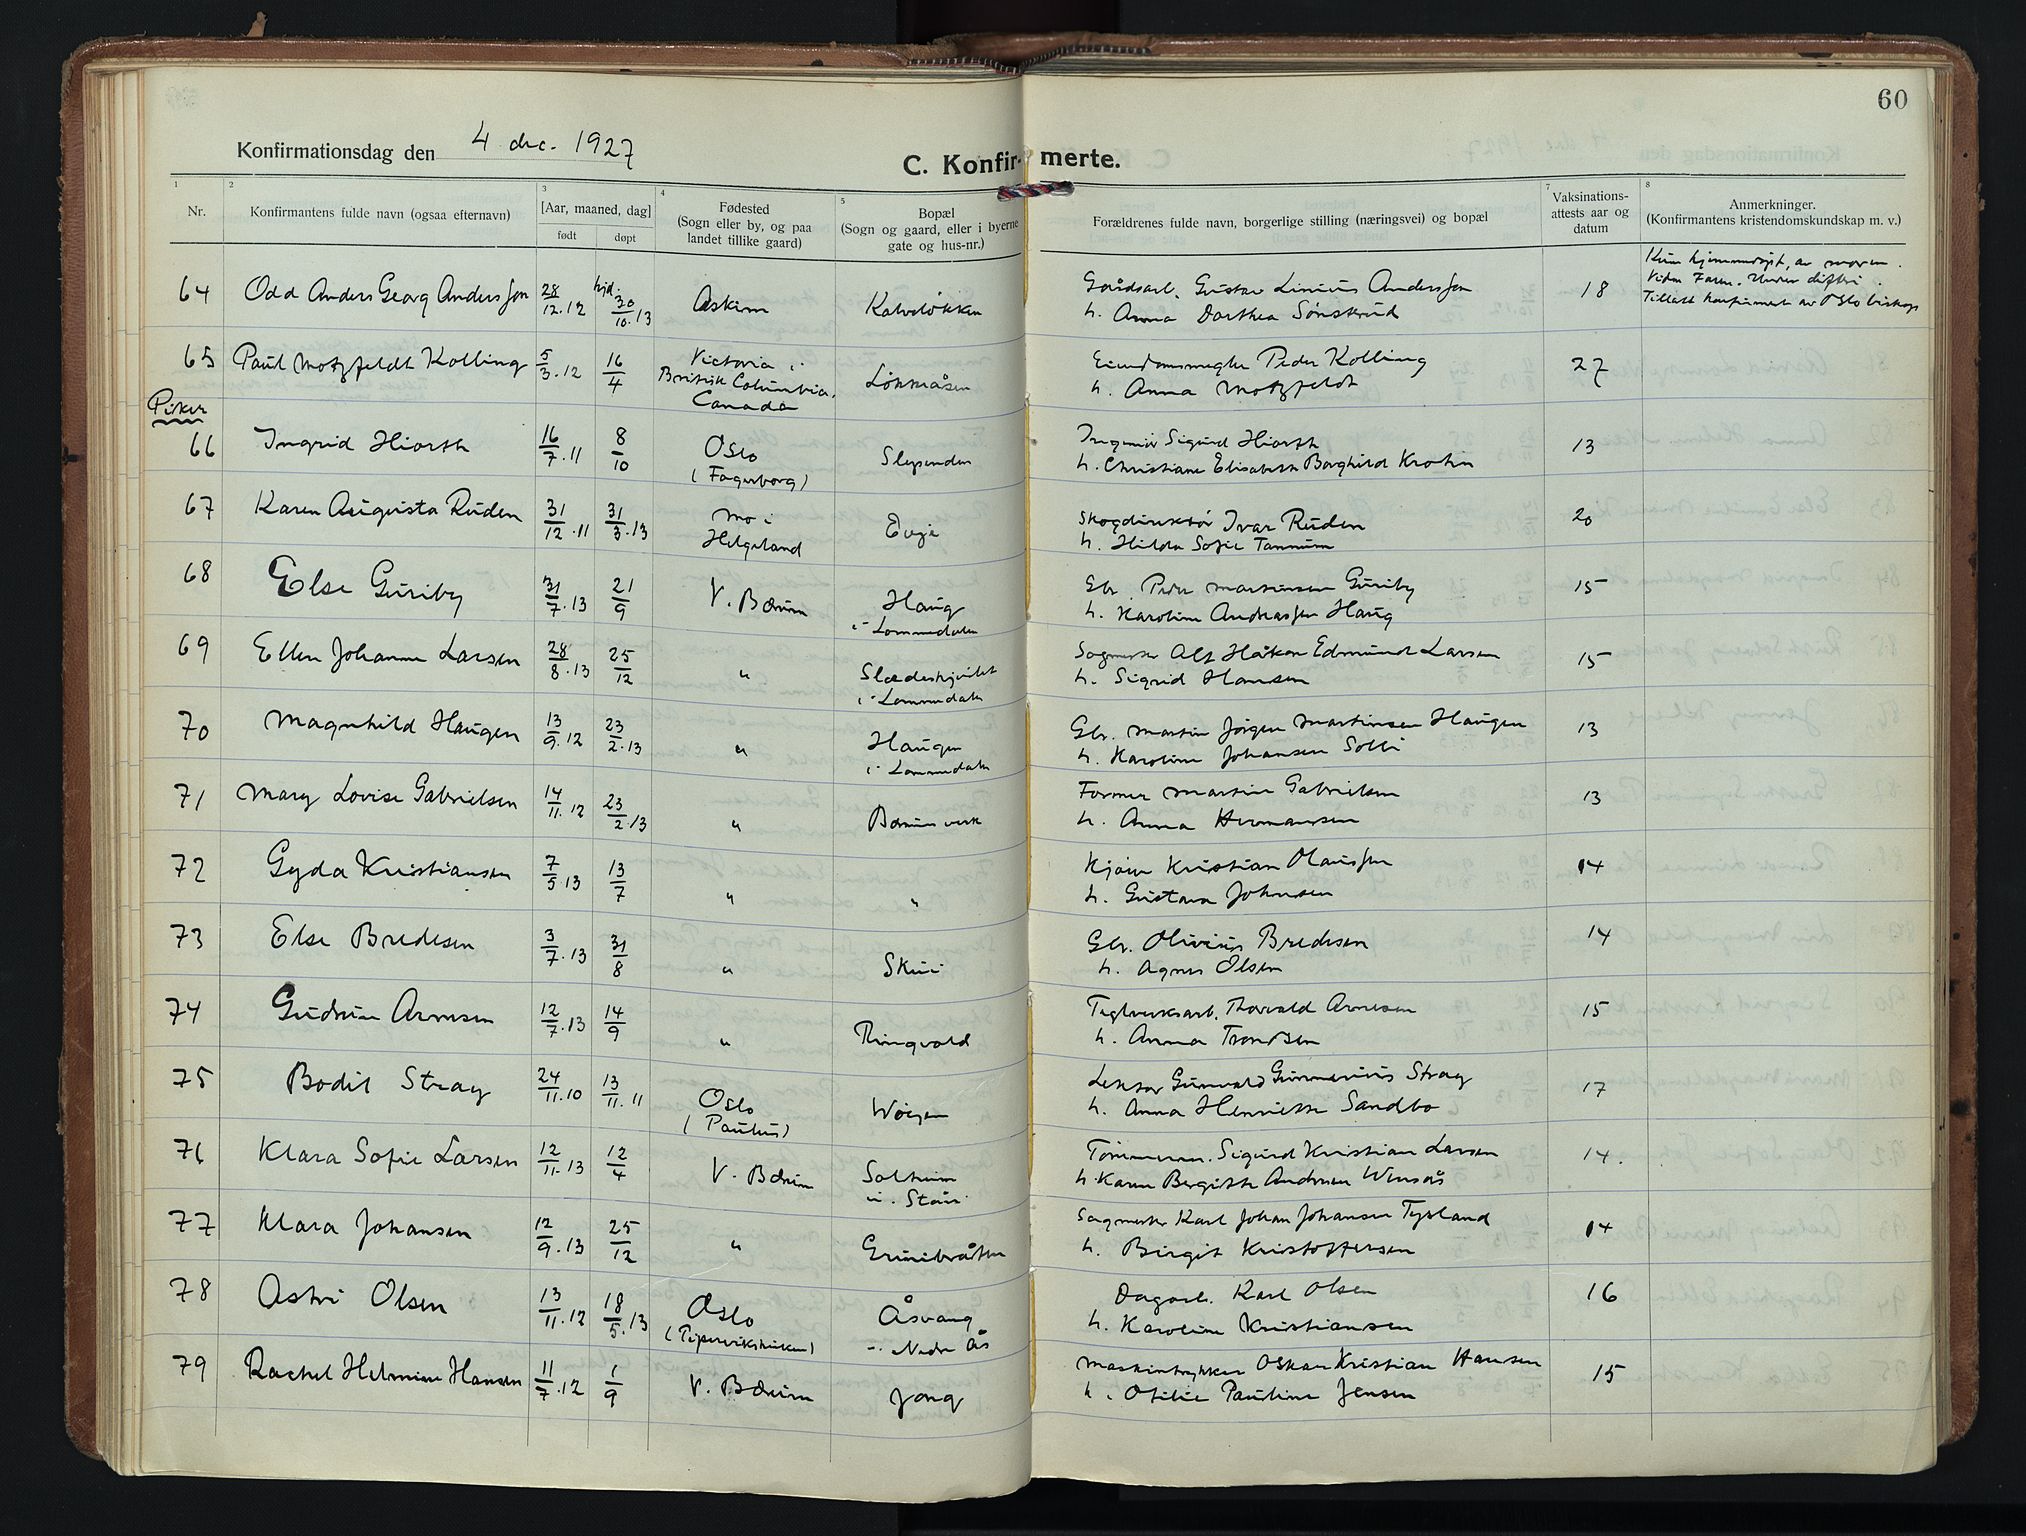 60
Konfirmationsdag den 4 dec. 1927
C. Konfirmerte.
1 2 3 4 5 7 8
Nr.
Konfirmantens fulde navn (ogsaa efternavn)
[Aar, maaned, dag]
født døpt
Fødested
(Sogn eller by, og paa
landet tillike gaard)
Bopæl
(Sogn og gaard, eller i byerne
gate og hus-nr.)
Forældrenes fulde navn, borgerlige stilling (næringsvei) og bopæl
Vaksinations-
attests aar og
datum
Anmerkninger.
(Konfirmantens kristendomskundskap m. v.)
64 Odd Anders Georg Anderssen 28/12.12 hjd. 30/10.13 Askim Kalveløkken
Gårdsarb. Gustav Linius Anderssen 18
h. Anna Dorthea Sønsterud
Kun hjemmedøpt, av moren.
Tillatt konfirmert av Oslo biskop
65 Paul Motzfeldt Kolling 5/3.12 16/4 Victoria i
British Columbia,
Canada
Løkkeåsen
Eiendomsmegler Peder Kolling 27
h. Anna Motzfeldt
Piker
66 Ingrid Hiorth 16/7.11 8/10 Oslo
(Fagerborg)
Slependen
Ingeniør Sigurd Hiorth 13
h. Christiane Elisabeth Borghild Krohn
67 Karen Augusta Ruden 31/12.11 31/3.13 Mo i
Helgeland
Evje
Skogdirektør Ivar Ruden 20
h. Hilda Sofie Tannum
68 Else Guriby 31/7.13 21/9 V. Bærum Haug
i Lommedalen
Gbr. Peder Martinsen Guriby 15
h. Karoline Andreassen Haug
69 Ellen Johanne Larsen 28/8.13 25/12 " Slædeshjvilet
i Lommedalen
Sagmester Alf Håkon Edmund Larsen 15
h. Sigrid Hansen
70 Magnhild Haugen 13/9.12 23/2.13 " Haugen
i Lommedalen
Gbr. Martin Jørgen Martinsen Haugen 13
h. Karoline Johansen Solli
71 Mary Lovise Gabrielsen 14/11.12 23/2.13 " Bærums verk
Former Martin Gabrielsen 13
h. Anna Hermansen
72 Gyda Kristiansen 7/5.13 13/7 " "
Kjører Kristian Olaussen 14
h. Gustava Johnsen
73 Else Bredesen 3/7.13 31/8 " Skui
Gbr. Olivius Bredesen 14
h. Agnes Olsen
74 Gudrun Arnesen 12/7.13 14/9 " Ringvold
Teglverksarb. Thorvald Arnesen 15
h. Anna Trondsen
75 Bodil Stray 24/11.10 13/11.11 Oslo
(Paulus)
Wøyen
Lektor Gunvald Gunnerius Stray 17
h. Anna Henriette Sandbo
76 Klara Sofie Larsen 12/11.13 12/4 V. Bærum Solheim
u. Stav
Tømmerm. Sigurd Kristian Larsen 14.
h. Karen Bergitte Andrea Wensås
77 Klara Johansen 12/9.13 25/12 " Grinibråten
Sagmester Karl Johan Johansen Tysland 14
h. Birgit Kristoffersen
78 Astri Olsen 13/11.12 18/5.13 Oslo
(Pipervikskirken)
Åsvang
Nedre Ås
Dagarb. Karl Olsen 16
h. Karoline Kristiansen
79 Rachel Helmine Hansen 11/7.12 1/9 V. Bærum Jong
Maskintrykker Oskar Kristian Hansen 15
h. Otilie Pauline Jensen